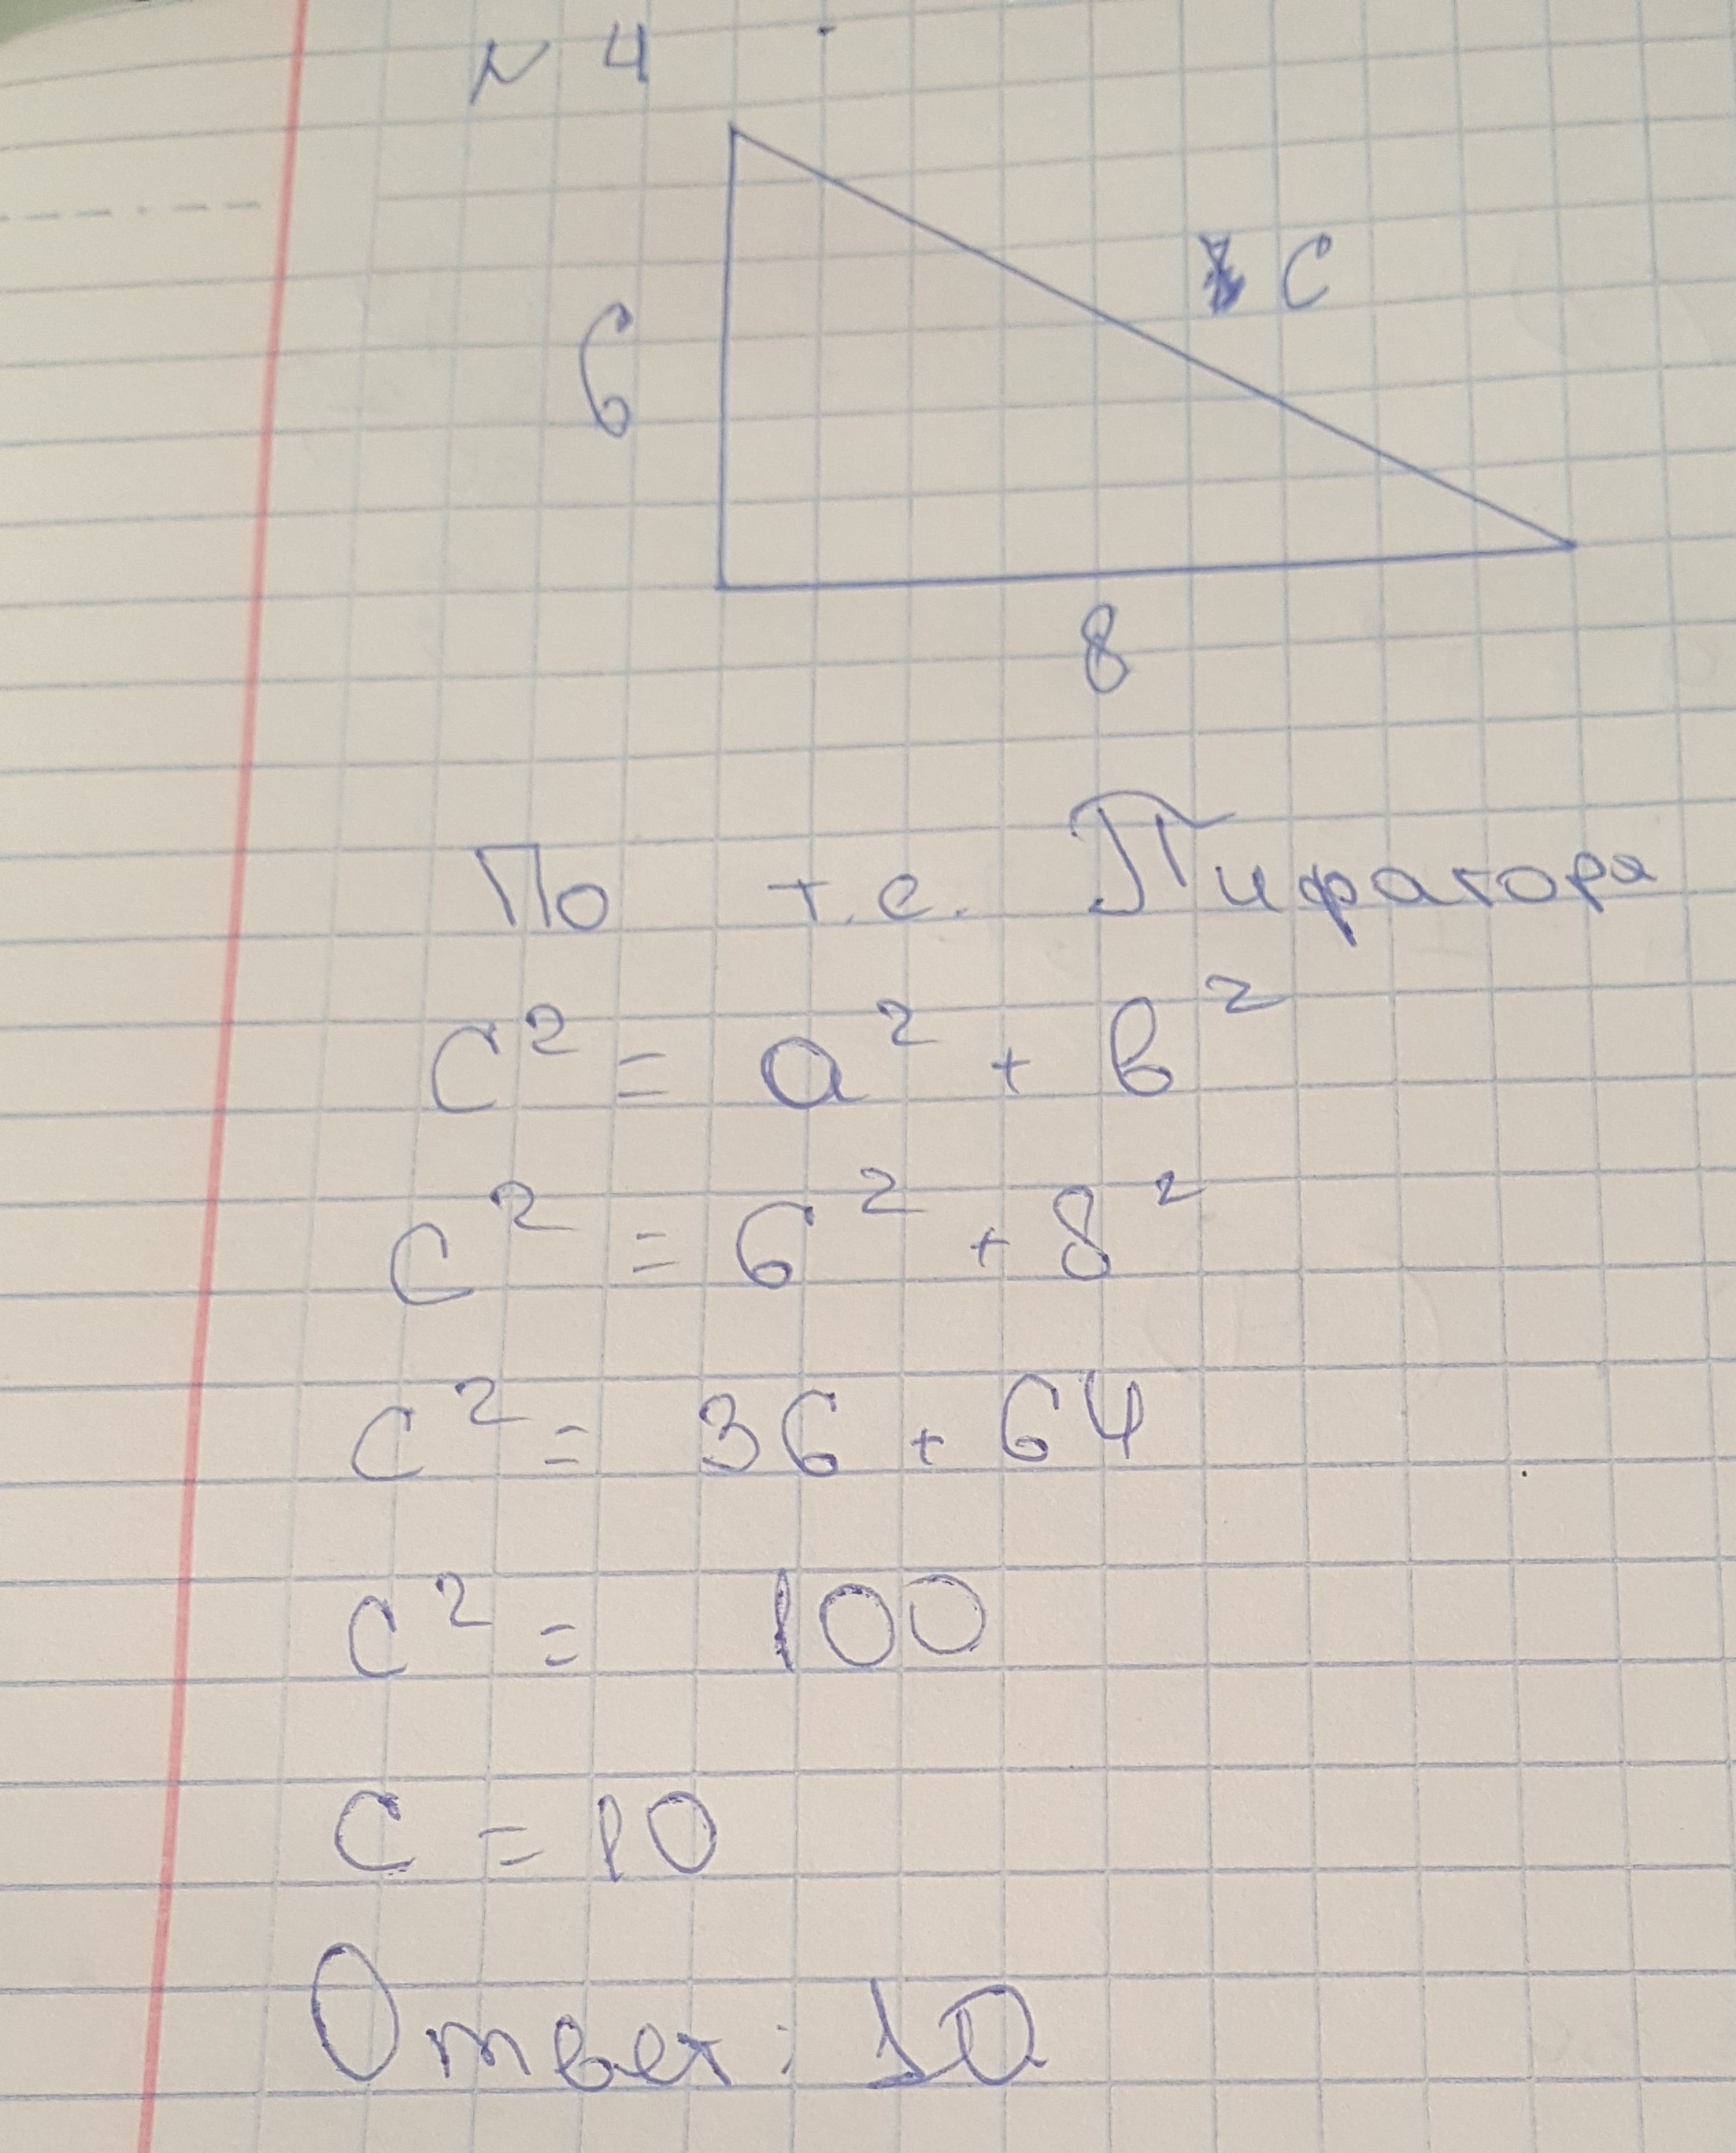 N 4
C
6
8
По т.е. Пифагора
C² = a² + в²
C² = 6² + 8²
C² = 36 + 64
C² = 100
C = 10
Ответ: 10